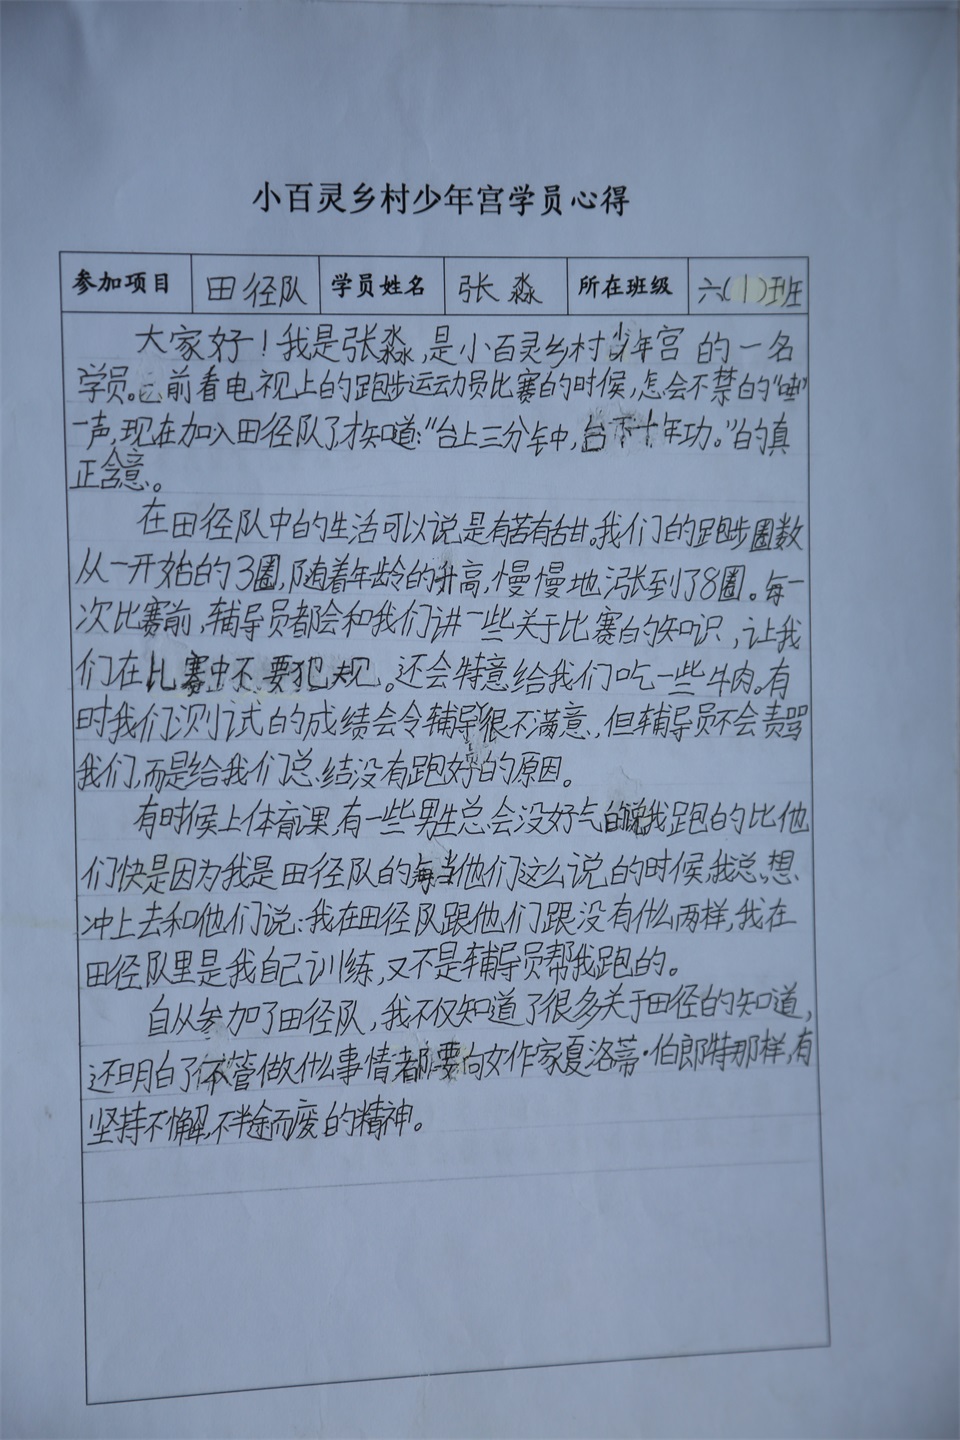 小百灵乡村少年宫学员心得
参加项目 田径队 学员姓名 张淼 所在班级 六(1)班
大家好!我是张淼,是小百灵乡村少年宫的一名
学员。已前看电视上的跑步运动员比赛的时候,怎会不禁的“唾”
一声,现在加入田径队了才知道:“台上三分钟中,台下十年功。”的真
正含意。
在田径队中的生活可以说是有苦有甜。我们的跑步圈数
从一开始的3圈,随着年龄的升高,慢慢地涨到了8圈。每一
次比赛前,辅导员都会和我们讲一些关于比赛的知识,让我
们在比赛中不要犯规。还会特意给我们吃一些牛肉。有
时我们测试的成绩会令辅导员很不满意,但辅导员不会责骂
我们,而是给我们总结没有跑好的原因。
有时候上体育课,有一些男生总会没好气的说我跑的比他
们快是因为我是田径队的每当他们这么说的时候,我总想
冲上去和他们说:我在田径队跟他们跟没有什么两样,我在
田径队里是我自己训练,又不是辅导员帮我跑的。
自从参加了田径队,我不仅知道了很多关于田径的知道,
还明白了不管做什么事情都要向女作家夏洛蒂·伯郎特那样,有
坚持不懈,不半途而废的精神。